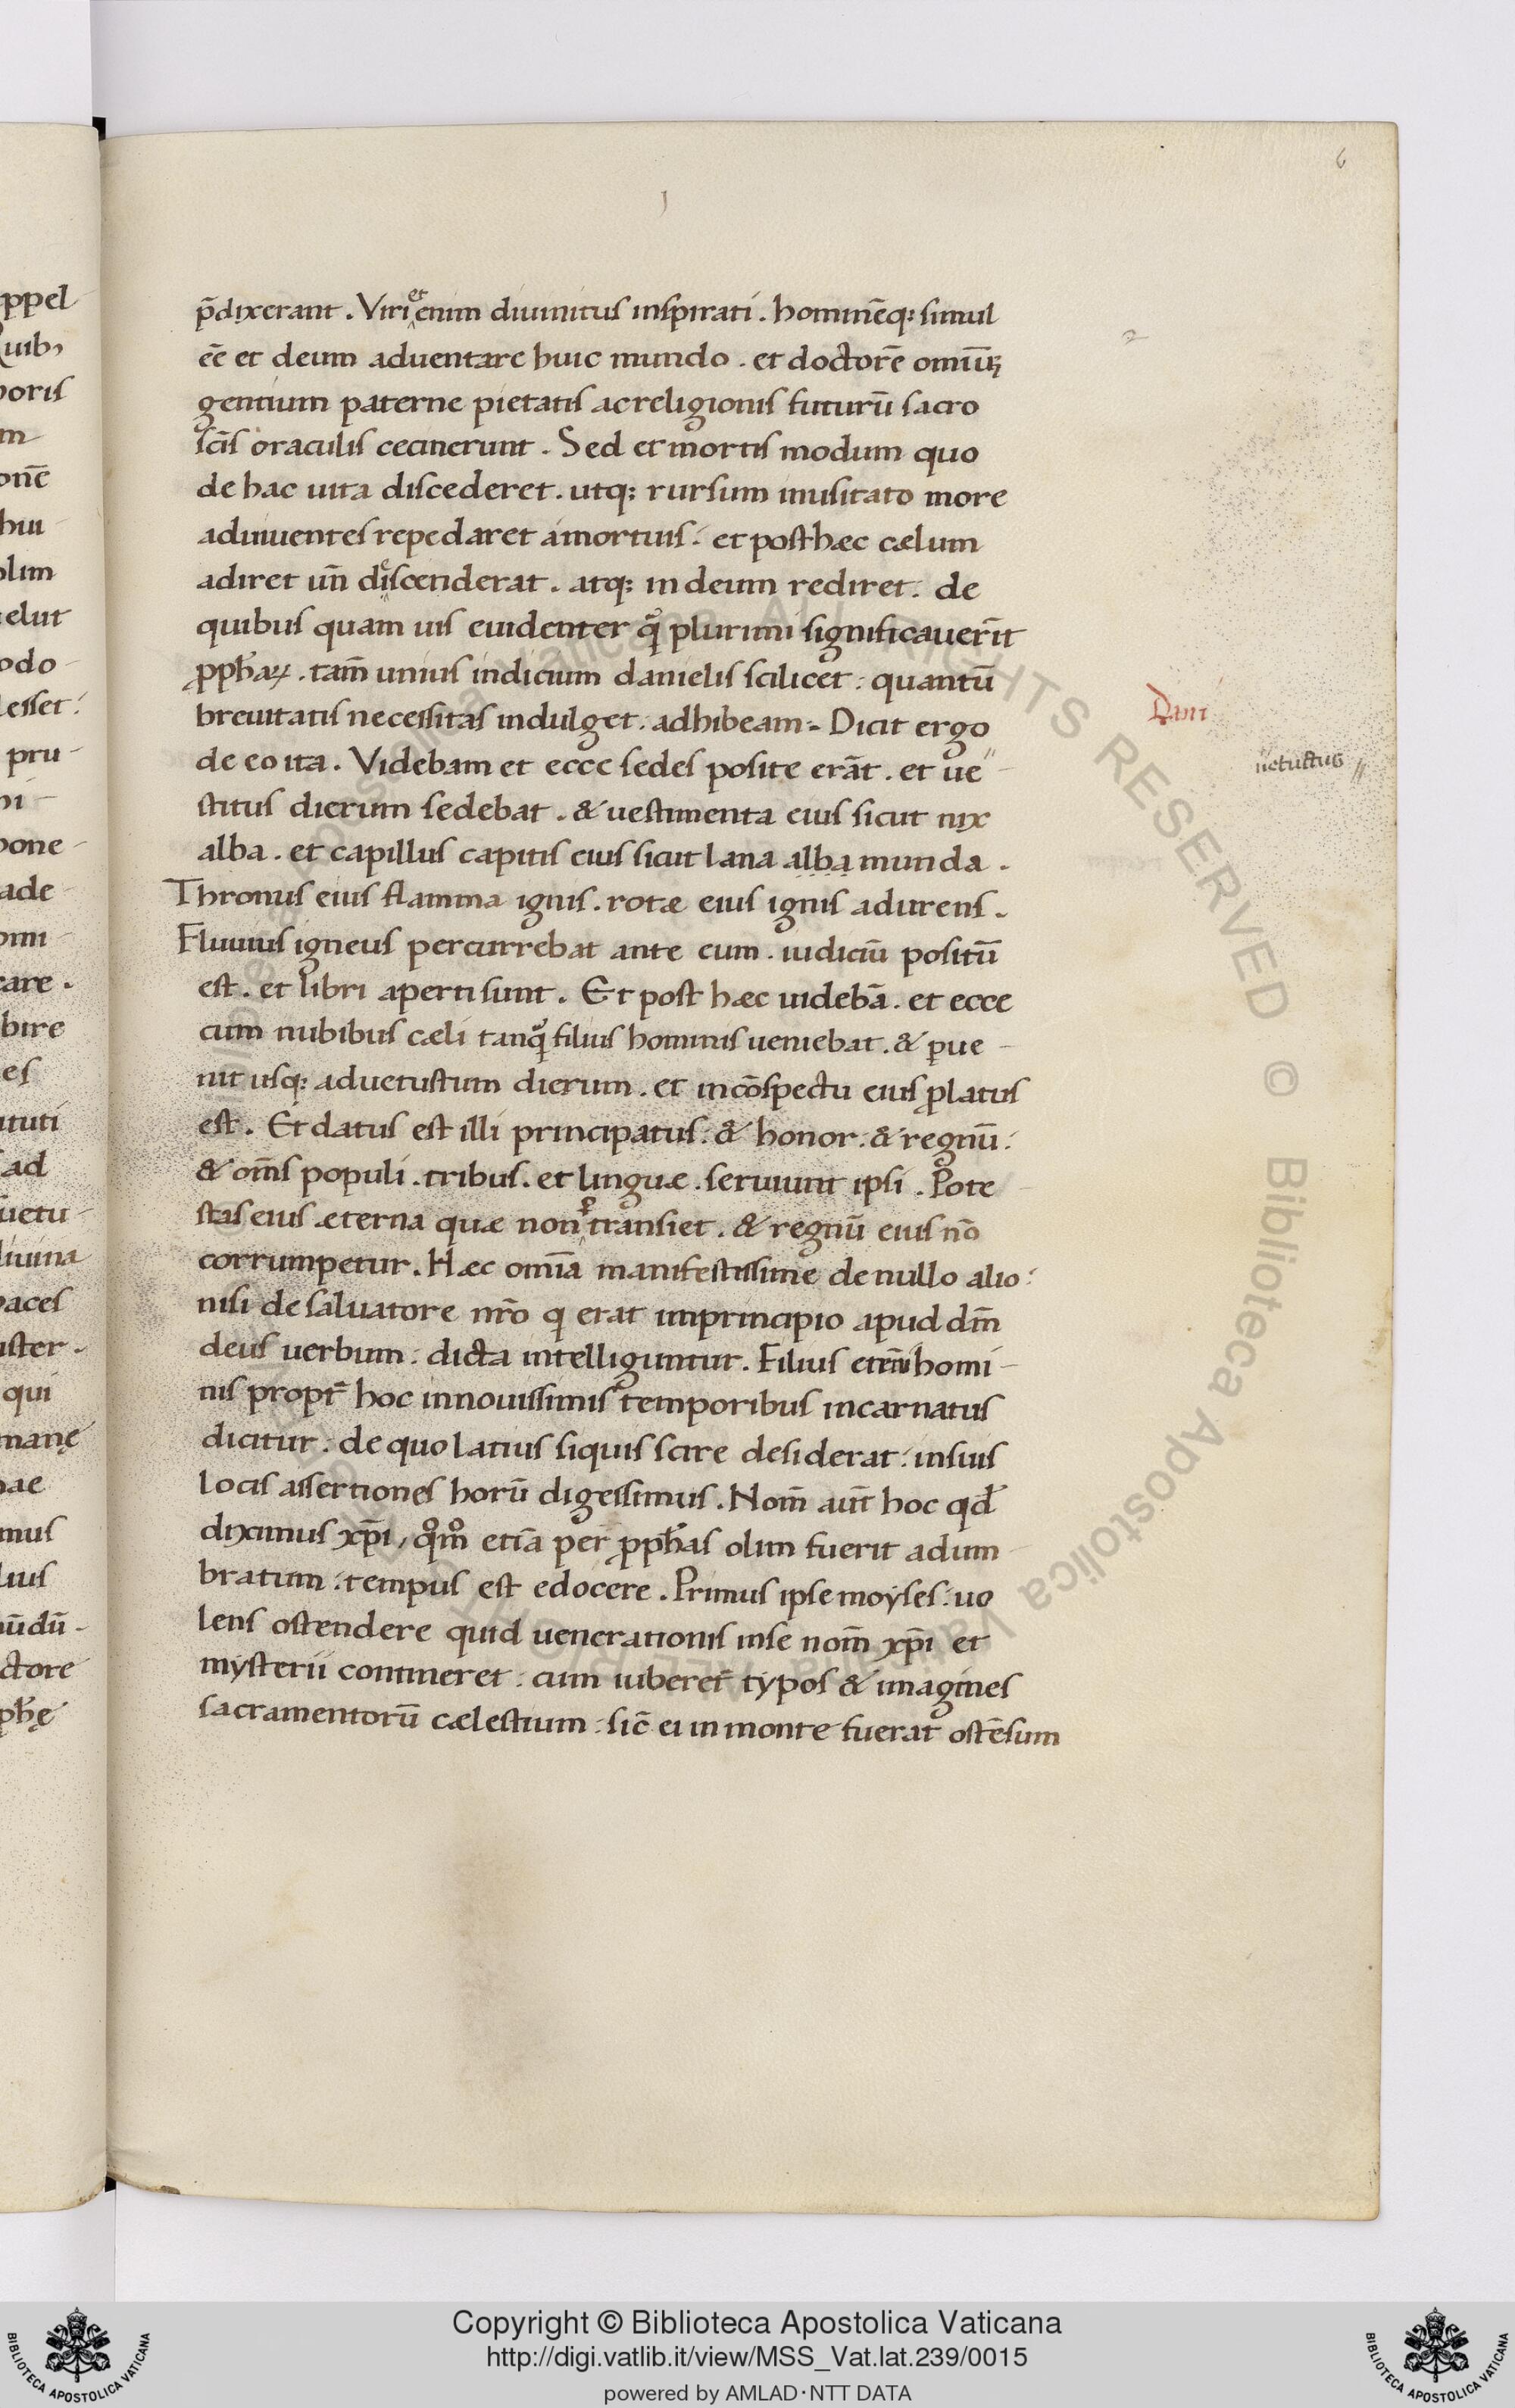 6
p̄dixerant . Viri et enim diuinitus inspirati . hominēq; simul
eē et deum aduentare huic mundo . et doctorē omiūꝝ
gentium paterne pietatis ac religionis futurū sacro
scīs oraculis cecinerunt . Sed et mortis modum quo
de hac uita discederet . utq; rursum inusitato more
ad uiuentes repedaret a mortuis : et post hæc cælum
adiret uñ discenderat . atq; in deum rediret . de
quibus quam uis euidenter q̄ plurimi significauerīt
ꝓpħaꝝ . tam̄ unius indicium danielis scilicet : quantū
breuitatis necessitas indulget : adhibeam . Dicit ergo
Dani
de eo ita . Videbam et ecce sedes posite erāt . et ue
uetustus
stitus dierum sedebat . & uestimenta eius sicut nix
alba . et capillus capitis eius sicut lana alba munda .
Thronus eius flamma ignis . rotæ eius ignis adurens .
Fluuius igneus percurrebat ante eum . iudiciū positū
est . et libri aperti sunt . Et post hæc uidebā . et ecce
cum nubibus cæli tanq̄ filius hominis ueniebat . & ꝑue
nit usq; ad uetustum dierum . et in cōspectu eius ꝓlatus
est . Et datus est illi principatus : & honor . & regnū :
& om̄s populi . tribus . et linguæ . seruiunt ipsi . Pote
stas eius æterna quæ non ꝑ transiet . & regnū eius nō
corrumpetur . Hæc omīa manifestissime de nullo alio :
nisi de saluatore nr̄o q erat in principio apud dm̄
deus uerbum : dicta intelliguntur . Filius eteni homi
nis propt̄ hoc in nouissimis temporibus incarnatus
dicitur : de quo latius siquis scire desiderat : in suis
locis assertiones horū digessimus . Nom̄ aut̄ hoc qd̄
diximus xp̄i , qōm̊ etiā per ꝓpħas olim fuerit adum
bratum : tempus est edocere . Primus ipse moyses : uo
lens ostendere quid uenerationis in se nom̄ xp̄i et
mysterii contineret : cum iuberet̄ typos & imagines
sacramentorū cælestium : sic̄ ei in monte fuerat ostēsum
ppel
uib,
poris
m
onē
hui
olim
elut
odo
esset :
pru
ni
pone
ade
omi
are .
bire
es
tuti
ad
uetu
diuina
paces
ister .
qui
manę
ae
mus
lius
ūdū
ctore
pħę
Copyright © Biblioteca Apostolica Vaticana
http://digi.vatlib.it/view/MSS_Vat.lat.239/0015
powered by AMLAD·NTT DATA
BIBLIOTECA APOSTOLICA VATICANA
BIBLIOTECA APOSTOLICA VATICANA